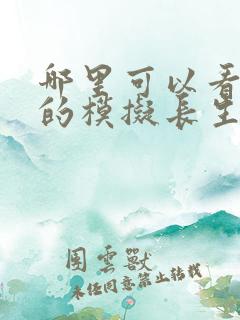 哪里可以看
的模擬長生
围雲獸
未经同意禁止转载